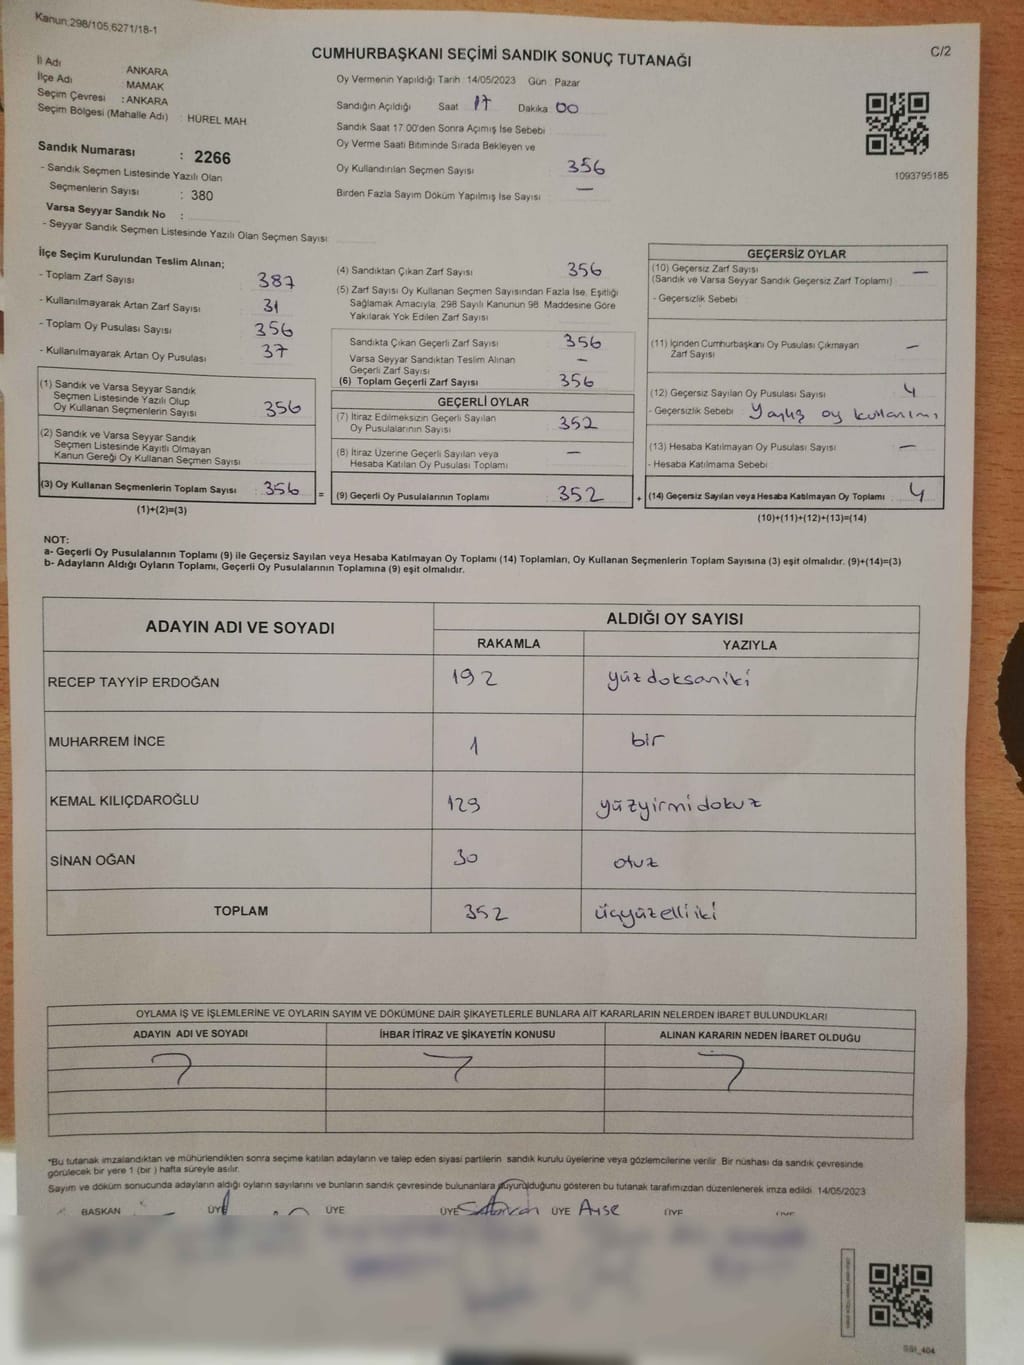 Kanun:298/105,6271/18-1
C/2
CUMHURBAŞKANI SEÇİMİ SANDIK SONUÇ TUTANAĞI
İl Adı ANKARA
İlçe Adı : MAMAK
Seçim Çevresi : ANKARA
Seçim Bölgesi (Mahalle Adı) : HÜREL MAH
Sandık Numarası : 2266
- Sandık Seçmen Listesinde Yazılı Olan
Seçmenlerin Sayısı : 380
Varsa Seyyar Sandık No :
- Seyyar Sandık Seçmen Listesinde Yazılı Olan Seçmen Sayısı
Oy Vermenin Yapıldığı Tarih 14/05/2023 Gün Pazar
Sandığın Açıldığı Saat 17 Dakika 00
Sandık Saat 17 00'den Sonra Açımış İse Sebebi
Oy Verme Saati Bitiminde Sırada Bekleyen ve
Oy Kullandırılan Seçmen Sayısı 356
Birden Fazla Sayım Döküm Yapılmış İse Sayısı —
1093795185
İlçe Seçim Kurulundan Teslim Alınan;
- Toplam Zarf Sayısı 387
- Kullanılmayarak Artan Zarf Sayısı 31
- Toplam Oy Pusulası Sayısı 356
- Kullanılmayarak Artan Oy Pusulası 37
(1) Sandık ve Varsa Seyyar Sandık
Seçmen Listesinde Yazılı Olup
Oy Kullanan Seçmenlerin Sayısı 356
(2) Sandık ve Varsa Seyyar Sandık
Seçmen Listesinde Kayıtlı Olmayan
Kanun Gereği Oy Kullanan Seçmen Sayısı
(3) Oy Kullanan Seçmenlerin Toplam Sayısı : 356 =
(1)+(2)=(3)
(4) Sandıktan Çıkan Zarf Sayısı 356
(5) Zarf Sayısı Oy Kullanan Seçmen Sayısından Fazla İse, Eşitliği
Sağlamak Amacıyla, 298 Sayılı Kanunun 98. Maddesine Göre
Yakılarak Yok Edilen Zarf Sayısı
Sandıkta Çıkan Geçerli Zarf Sayısı 356
Varsa Seyyar Sandıktan Teslim Alınan
Geçerli Zarf Sayısı —
(6) Toplam Geçerli Zarf Sayısı 356
GEÇERLİ OYLAR
(7) İtiraz Edilmeksizin Geçerli Sayılan
Oy Pusulalarının Sayısı 352
(8) İtiraz Üzerine Geçerli Sayılan veya
Hesaba Katılan Oy Pusulası Toplamı —
(9) Geçerli Oy Pusulalarının Toplamı 352 +
GEÇERSİZ OYLAR
(10) Geçersiz Zarf Sayısı —
(Sandık ve Varsa Seyyar Sandık Geçersiz Zarf Toplamı)
- Geçersizlik Sebebi
(11) İçinden Cumhurbaşkanı Oy Pusulası Çıkmayan
Zarf Sayısı —
(12) Geçersiz Sayılan Oy Pusulası Sayısı 4
- Geçersizlik Sebebi Yanlış oy kullanımı
(13) Hesaba Katılmayan Oy Pusulası Sayısı —
- Hesaba Katılmama Sebebi
(14) Geçersiz Sayılan veya Hesaba Katılmayan Oy Toplamı 4
(10)+(11)+(12)+(13)=(14)
NOT:
a- Geçerli Oy Pusulalarının Toplamı (9) ile Geçersiz Sayılan veya Hesaba Katılmayan Oy Toplamı (14) Toplamları, Oy Kullanan Seçmenlerin Toplam Sayısına (3) eşit olmalıdır. (9)+(14)=(3)
b- Adayların Aldığı Oyların Toplamı, Geçerli Oy Pusulalarının Toplamına (9) eşit olmalıdır.
ADAYIN ADI VE SOYADI
ALDIĞI OY SAYISI
RAKAMLA YAZIYLA
RECEP TAYYİP ERDOĞAN 192 yüzdoksaniki
MUHARREM İNCE 1 bir
KEMAL KILIÇDAROĞLU 129 yüzyirmidokuz
SİNAN OĞAN 30 otuz
TOPLAM 352 üçyüzelliiki
OYLAMA İŞ VE İŞLEMLERİNE VE OYLARIN SAYIM VE DÖKÜMÜNE DAİR ŞİKAYETLERLE BUNLARA AİT KARARLARIN NELERDEN İBARET BULUNDUKLARI
ADAYIN ADI VE SOYADI İHBAR İTİRAZ VE ŞİKAYETİN KONUSU ALINAN KARARIN NEDEN İBARET OLDUĞU
*Bu tutanak imzalandıktan ve mühürlendikten sonra seçime katılan adayların ve talep eden siyasi partilerin sandık kurulu üyelerine veya gözlemcilerine verilir. Bir nüshası da sandık çevresinde
görülecek bir yere 1 (bir ) hafta süreyle asılır.
Sayım ve döküm sonucunda adayların aldığı oyların sayılarını ve bunların sandık çevresinde bulunanlara duyurulduğunu gösteren bu tutanak tarafımızdan düzenlenerek imza edildi. 14/05/2023
BAŞKAN ÜYE ÜYE ÜYE ÜYE Ayşe ÜYE ÜYE